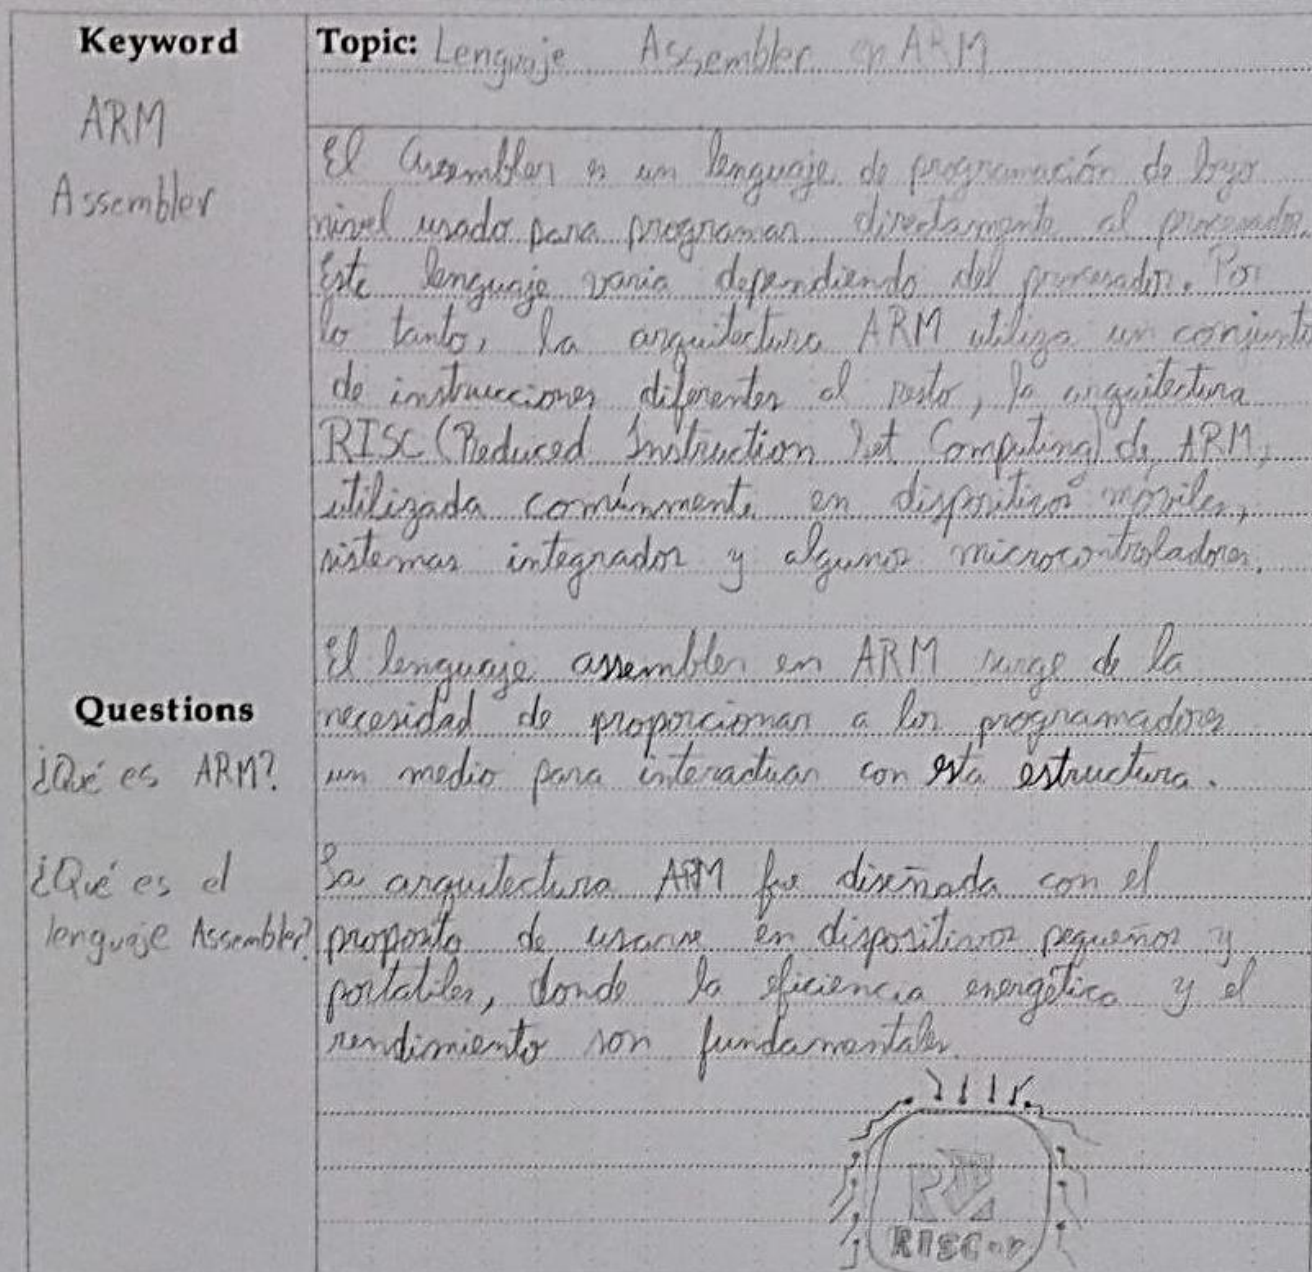 Keyword
ARM
Assembler
Questions
¿Qué es ARM?
¿Qué es el
lenguaje Assembler?
Topic: Lenguaje Assembler en ARM
El Assembler es un lenguaje de programación de bajo
nivel usado para programar directamente al procesador.
Este lenguaje varia dependiendo del procesador. Por
lo tanto, la arquitectura ARM utiliza un conjunto
de instrucciones diferentes al resto, la arquitectura
RISC (Reduced Instruction Set Computing) de ARM,
utilizada comúnmente en dispositivos móviles,
sistemas integrados y algunos microcontroladores.
El lenguaje assembler en ARM surge de la
necesidad de proporcionar a los programadores
un medio para interactuar con esta estructura.
La arquitectura ARM fue diseñada con el
proposito de usarse en dispositivos pequeños y
portatiles, donde la eficiencia energética y el
rendimiento son fundamentales.